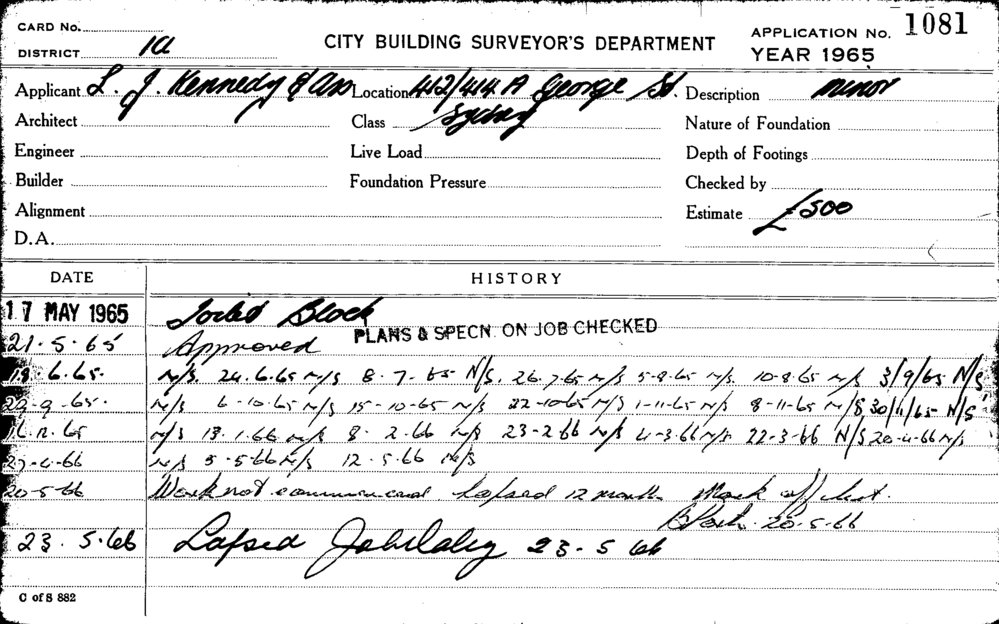 CARD No.
DISTRICT 1a
CITY BUILDING SURVEYOR'S DEPARTMENT
APPLICATION No. 1081
YEAR 1965
Applicant L. J. Kennedy & Ass Location 412/414A George St. Description minor
Architect Class Sydney Nature of Foundation
Engineer Live Load Depth of Footings
Builder Foundation Pressure Checked by
Alignment Estimate £500
D.A.
DATE HISTORY
17 MAY 1965 Toilet Block
PLANS & SPECN. ON JOB CHECKED
21.5.65 Approved
18.6.65. N/S. 24.6.65 N/S 8.7.65 N/S. 26.7.65 N/S 5-8-65 N/S. 10-8-65 N/S 3/9/65 N/S
N/S 6-10-65 N/S 15-10-65 N/S 22-10-65 N/S 1-11-65 N/S 8-11-65 N/S 30/11/65 N/S
N/S 13.1.66 N/S 8.2.66 N/S 23-2-66 N/S 4-3-66 N/S 22-3-66 N/S 20-4-66 N/S
N/S 5-5-66 N/S 12.5.66 N/S
20-5-66 Work not commenced lapsed 12 months Mark off list.
20-5-66
23.5.66 Lapsed 23-5 66
C of S 882